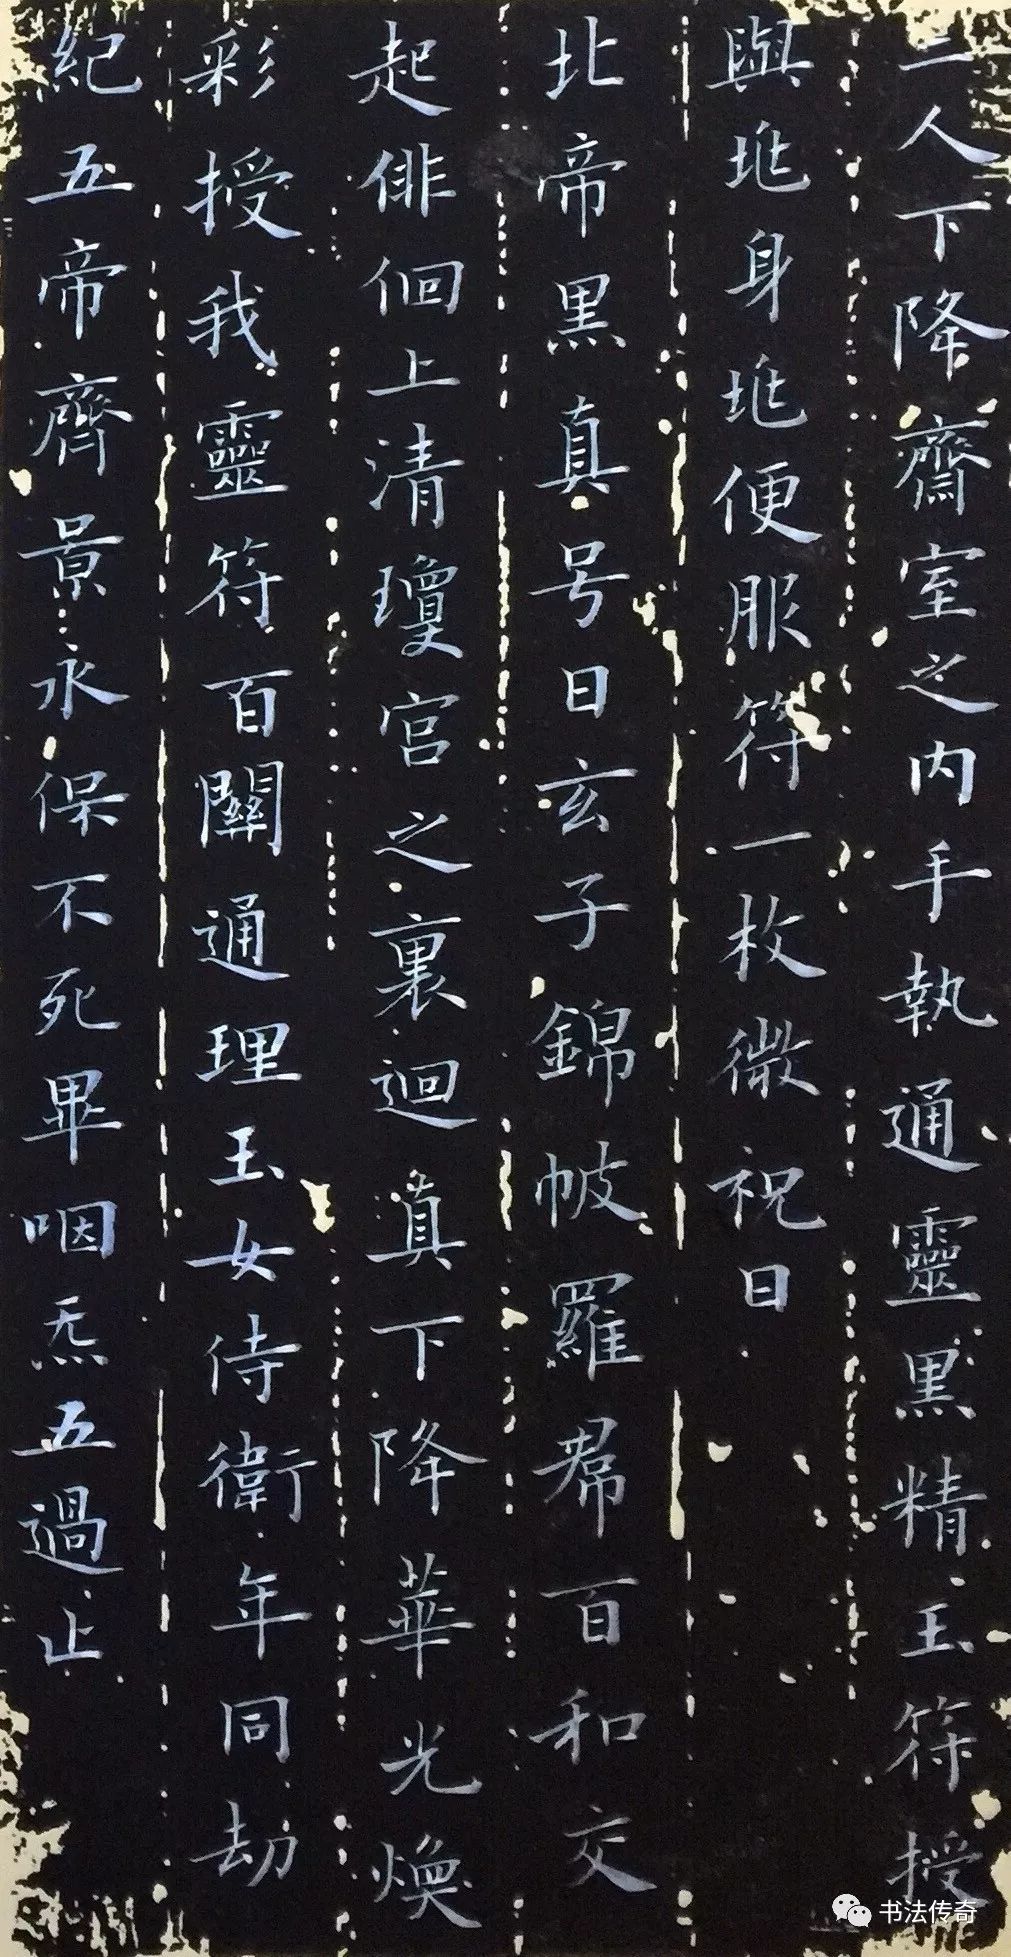 二人下降齋室之内手執通靈黒精玉符授
與兆身兆便服符一枚微祝曰
北帝黒真号曰玄子錦帔羅帬百和交
起俳佪上清瓊宮之裏迴真下降華光煥
彩授我靈符百關通理玉女侍衛年同劫
紀五帝齊景永保不死畢咽炁五過止
书法传奇